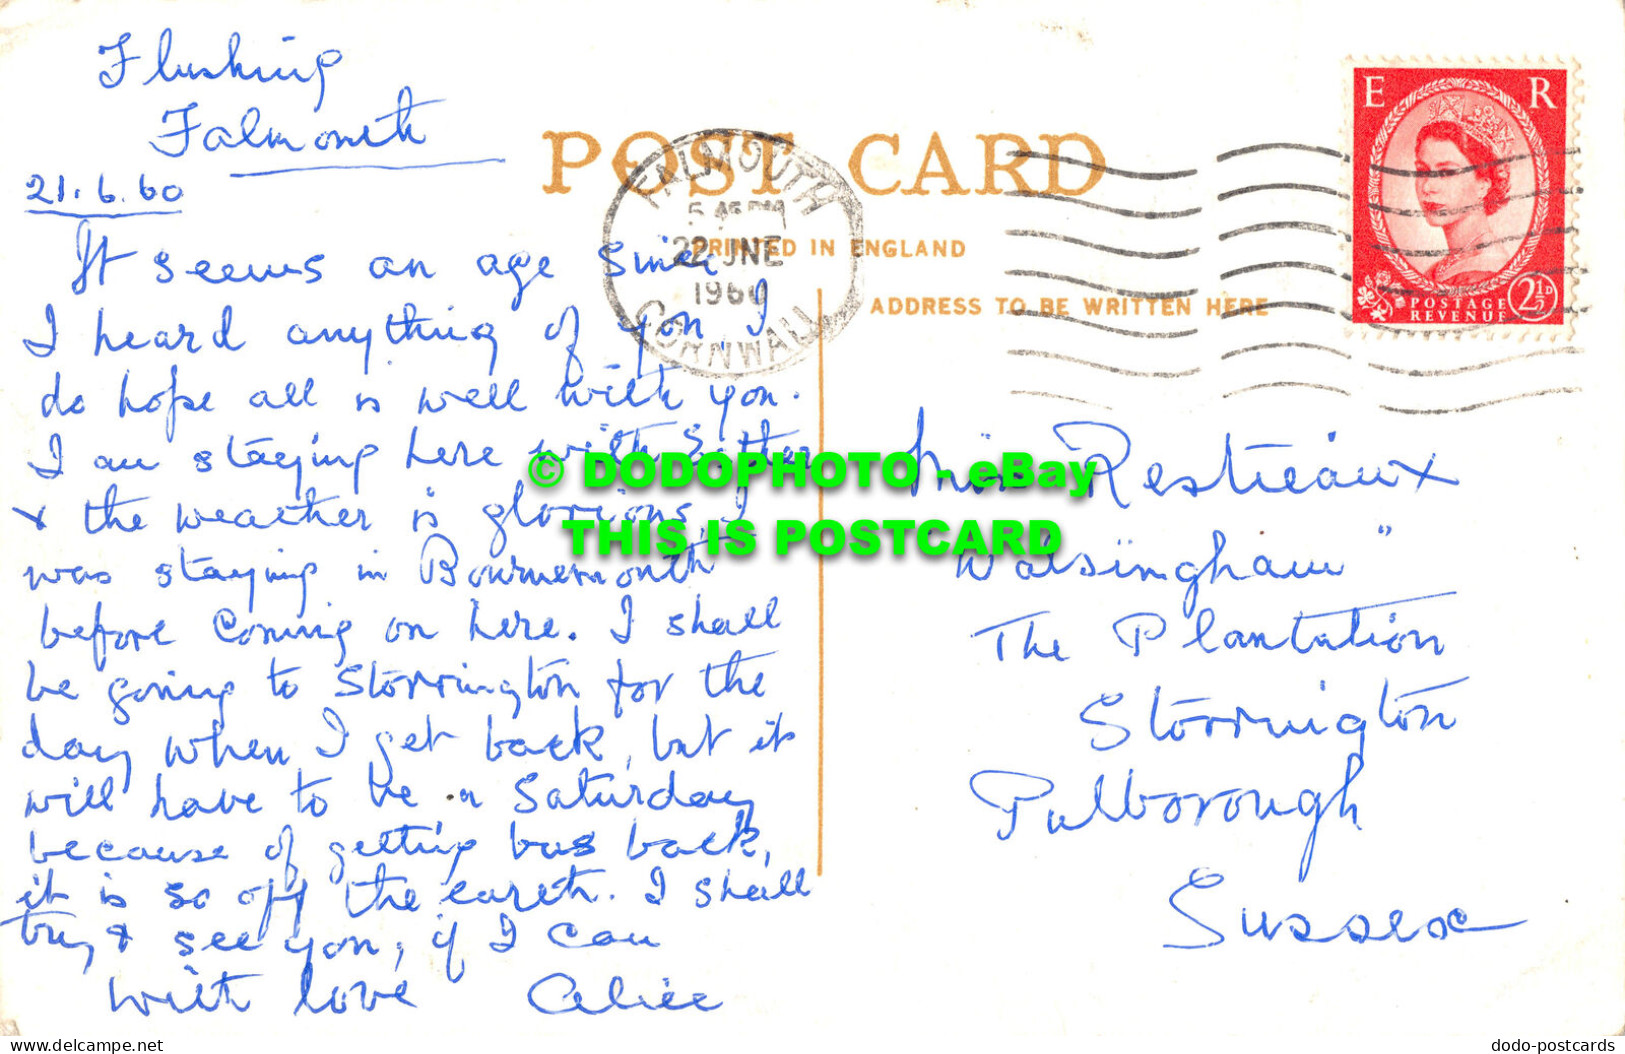 Flushing
Falmouth
21.6.60
It seems an age since
I heard anything of you, I
do hope all is well with you.
I am staying here with Sister
& the weather is glorious, I
was staying in Bournemouth
before coming on here. I shall
be going to Storrington for the
day when I get back, but it
will have to be a Saturday
because of getting bus back,
it is so off the earth. I shall
try & see you, if I can
with love Alice
POST CARD
PRINTED IN ENGLAND
ADDRESS TO BE WRITTEN HERE
FALMOUTH
5.45 PM
22 JNE
1960
CORNWALL
E R
POSTAGE
REVENUE
2½D
Miss Restieaux
"Walsingham"
The Plantation
Storrington
Pulborough
Sussex
© DODOPHOTO - eBay
THIS IS POSTCARD
www.delcampe.net
dodo-postcards